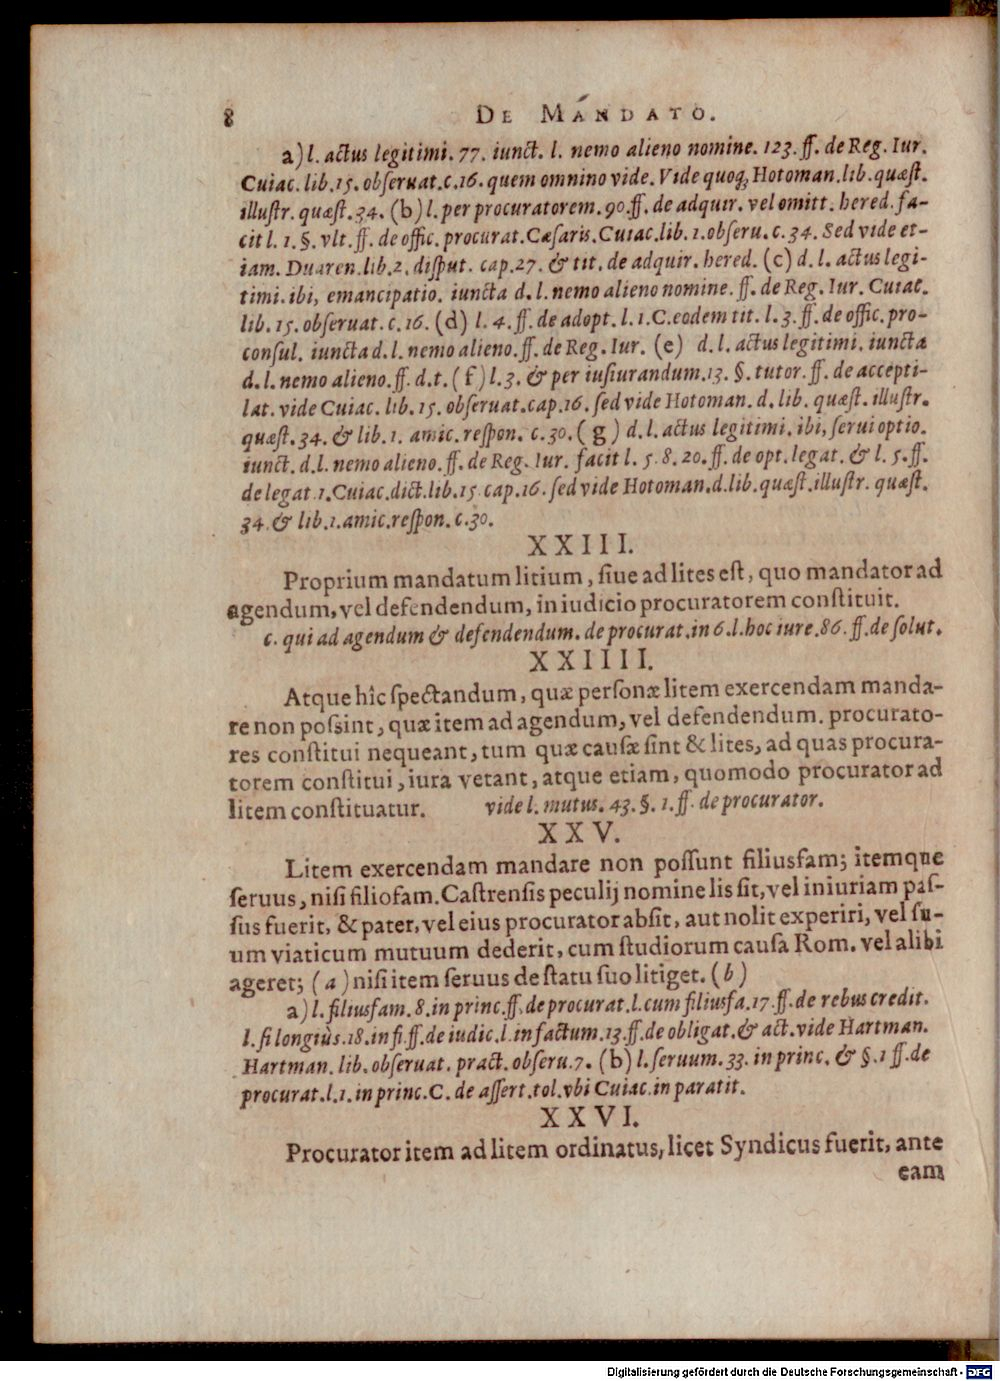 8 DE MANDATO.
a) l. actus legitimi. 77. iunct. l. nemo alieno nomine. 123. ff. de Reg. Iur.
Cuiac. lib. 15. obseruat. c. 16. quem omnino vide. Vide quoq; Hotoman. lib. quæst.
illustr. quæst. 34. (b) l. per procuratorem. 90. ff. de adquir. vel omitt. hered. fa-
cit l. 1. §. vlt. ff. de offic. procurat. Cæsaris. Cuiac. lib. 1. obseru. c. 34. Sed vide et-
iam. Duaren. lib. 2. disput. cap. 27. & tit. de adquir. hered. (c) d. l. actus legi-
timi. ibi, emancipatio. iuncta d. l. nemo alieno nomine. ff. de Reg. Iur. Cuiac.
lib. 15. obseruat. c. 16. (d) l. 4. ff. de adopt. l. 1. C. eodem tit. l. 3. ff. de offic. pro-
consul. iuncta d. l. nemo alieno. ff. de Reg. Iur. (e) d. l. actus legitimi. iuncta
d. l. nemo alieno. ff. d. t. (f) l. 3. & per iusiurandum. 13. §. tutor. ff. de accepti-
lat. vide Cuiac. lib. 15. obseruat. cap. 16. sed vide Hotoman. d. lib. quæst. illustr.
quæst. 34. & lib. 1. amic. respon. c. 30. (g) d. l. actus legitimi. ibi, serui optio.
iunct. d. l. nemo alieno. ff. de Reg. Iur. facit l. 5. 8. 20. ff. de opt. legat. & l. 5. ff.
de legat. 1. Cuiac. dict. lib. 15. cap. 16. sed vide Hotoman. d. lib. quæst. illustr. quæst.
34. & lib. 1. amic. respon. c. 30.
XXIII.
Proprium mandatum litium, siue ad lites est, quo mandator ad
agendum, vel defendendum, in iudicio procuratorem constituit.
c. qui ad agendum & defendendum. de procurat. in 6. l. hoc iure. 86. ff. de solut.
XXIIII.
Atque hîc spectandum, quæ personæ litem exercendam manda-
re non possint, quæ item ad agendum, vel defendendum. procurato-
res constitui nequeant, tum quæ causæ sint & lites, ad quas procura-
torem constitui, iura vetant, atque etiam, quomodo procurator ad
litem constituatur. vide l. mutus. 43. §. 1. ff. de procurator.
XXV.
Litem exercendam mandare non possunt filiusfam; itemque
seruus, nisi filiofam. Castrensis peculij nomine lis sit, vel iniuriam pas-
sus fuerit, & pater, vel eius procurator absit, aut nolit experiri, vel su-
um viaticum mutuum dederit, cum studiorum causa Rom. vel alibi
ageret; (a) nisi item seruus de statu suo litiget. (b)
a) l. filiusfam. 8. in princ. ff. de procurat. l. cum filiusfa. 17. ff. de rebus credit.
l. si longiùs. 18. in fi. ff. de iudic. l. in factum. 13. ff. de obligat. & act. vide Hartman.
Hartman. lib. obseruat. pract. obseru. 7. (b) l. seruum. 33. in princ. & §. 1 ff. de
procurat. l. 1. in princ. C. de assert. tol. vbi Cuiac. in paratit.
XXVI.
Procurator item ad litem ordinatus, licet Syndicus fuerit, ante
eam
Digitalisierung gefördert durch die Deutsche Forschungsgemeinschaft - DFG